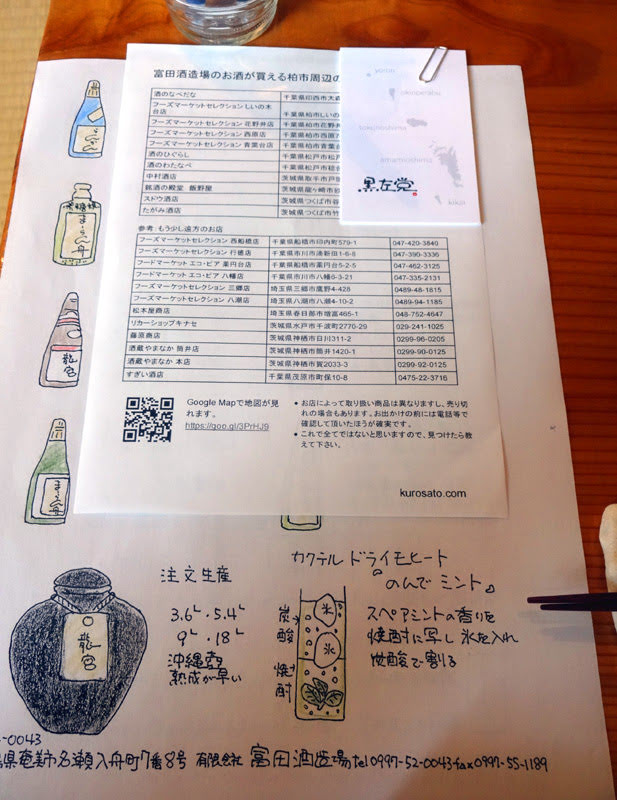 富田酒造場のお酒が買える柏市周辺の
yoron
okinoerabu
tokunoshima
amamioshima
kikai
黒左党
酒のなべだな 千葉県印西市大森
フーズマーケットセレクション しいの木台店 千葉県柏市しいの
フーズマーケットセレクション 花野井店 千葉県柏市花野井
フーズマーケットセレクション 西原店 千葉県柏市西原7
フーズマーケットセレクション 青葉台店 千葉県柏市青葉台
酒のひぐらし 千葉県松戸市松戸
酒のわたなべ 千葉県松戸市稔台
中村酒店 茨城県取手市戸頭
銘酒の殿堂 飯野屋 茨城県龍ヶ崎市砂
スドウ酒店 茨城県つくば市谷
たがみ酒店 茨城県つくば市竹
参考: もう少し遠方のお店
フーズマーケットセレクション 西船橋店 千葉県船橋市印内町579-1 047-420-3840
フーズマーケットセレクション 行徳店 千葉県市川市湊新田1-6-8 047-390-3336
フードマーケット エコ・ピア 薬円台店 千葉県船橋市薬円台5-2-5 047-462-3125
フードマーケット エコ・ピア 八幡店 千葉県市川市八幡0-3-21 047-335-2131
フーズマーケットセレクション 三郷店 埼玉県三郷市鷹野4-428 0489-48-1815
フーズマーケットセレクション 八潮店 埼玉県八潮市八潮4-10-2 0489-94-1185
松本屋商店 埼玉県春日部市増富465-1 048-752-4647
リカーショップキナセ 茨城県水戸市千波町2770-29 029-241-1025
藤原商店 茨城県神栖市日川311-2 0299-96-0205
酒蔵やまなか 筒井店 茨城県神栖市筒井1420-1 0299-90-0125
酒蔵やまなか 本店 茨城県神栖市賀2033-3 0299-92-0125
すぎい酒店 千葉県茂原市町保10-8 0475-22-3716
Google Mapで地図が見れます。
https://goo.gl/3PrHJ9
● お店によって取り扱い商品は異なりますし、売り切れの場合もあります。お出かけの前には電話等で確認して頂いたほうが確実です。
● これで全てではないと思いますので、見つけたら教えて下さい。
kurosato.com
まーらん舟
龍宮
まーらん舟
龍宮
注文生産
3.6L・5.4L
9L・18L
沖縄壺
熟成が早い
カクテル ドライモヒート
『のんで ミント』
炭酸
焼酎
氷
氷
スペアミントの香りを
焼酎に写し 氷を入れ
炭酸で割る
-0043
島県奄美市名瀬入舟町7番8号 有限会社 富田酒造場 tel 0997-52-0043 fax 0997-55-1189